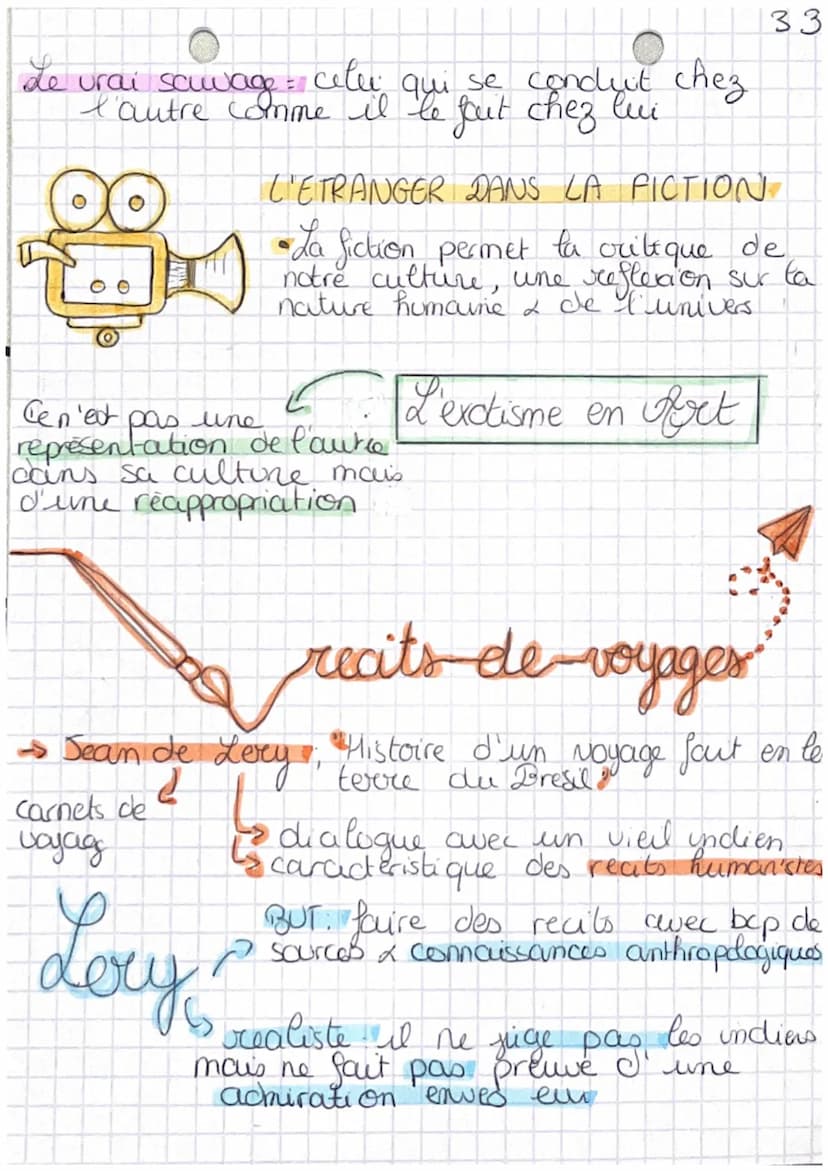 33
Le vrai sauvage = celui qui se conduit chez
l'autre comme il le fait chez lui
L'ETRANGER DANS LA FICTION
• La fiction permet la critique de
notre culture, une reflexion sur la
nature humaine & de l'univers
L'exotisme en Art
Ce n'est pas une
représentation de l'autre
dans sa culture mais
d'une réappropriation
recits de voyages
→ Jean de Lery, "Histoire d'un voyage fait en le
terre du Bresil"
carnets de
voyage
dialogue avec un vieil indien
caractéristique des recits humanistes
Lery
BUT: faire des recits avec bcp de
sources & connaissances anthropologiques
realiste il ne juge pas les indiens
mais ne fait pas preuve d'une
admiration envers eux